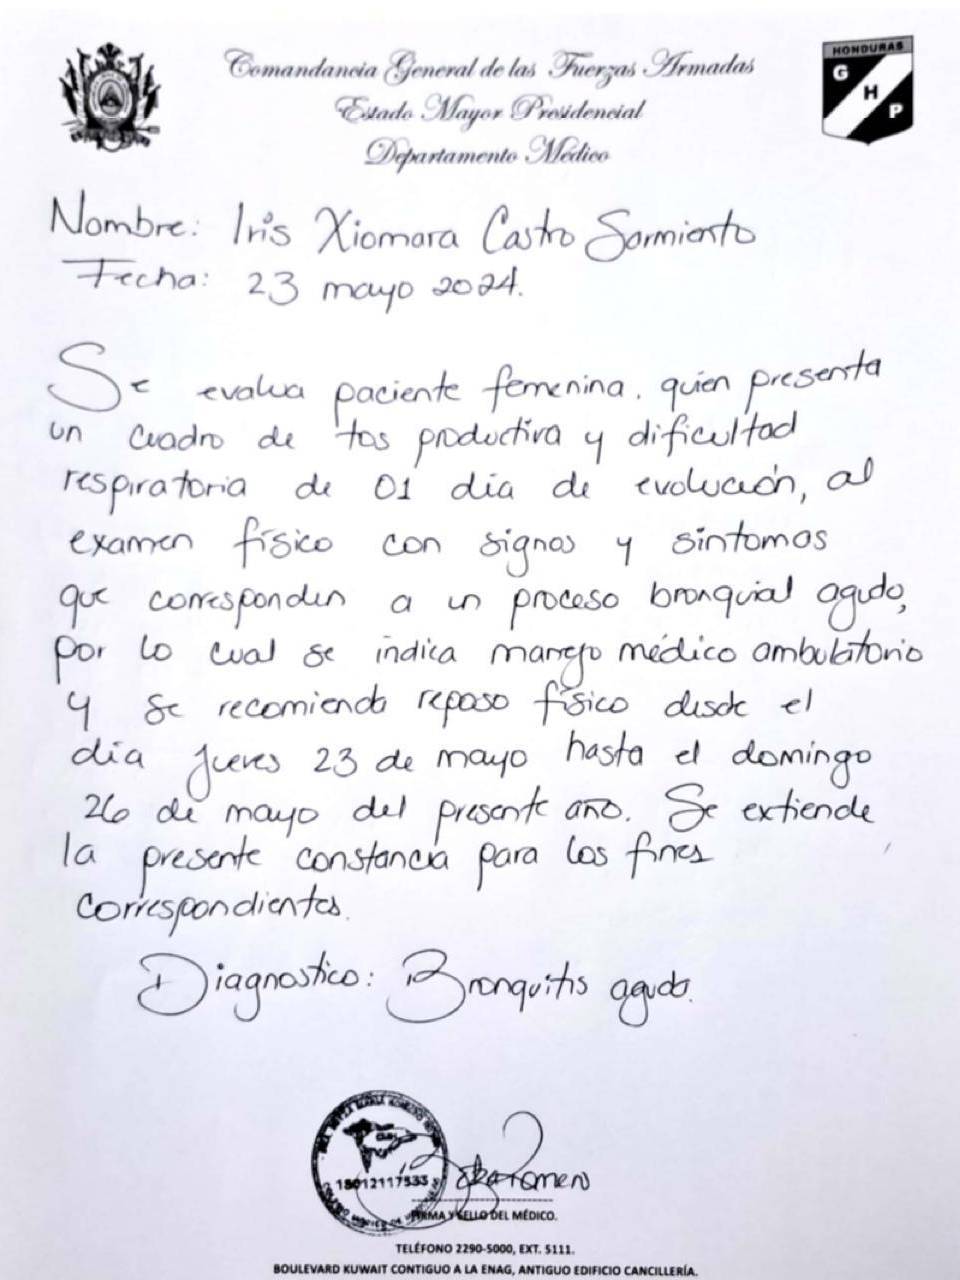 Comandancia General de las Fuerzas Armadas
Estado Mayor Presidencial
Departamento Médico
HONDURAS
G
H
P
Nombre: Iris Xiomara Castro Sarmiento
Fecha: 23 mayo 2024.
Se evalua paciente femenina. quien presenta
un cuadro de tos productiva y dificultad
respiratoria de 01 día de evolución, al
examen físico con signos y sintomas
que corresponden a un proceso bronquial agudo,
por lo cual se indica manejo médico ambulatorio
y se recomienda reposo físico desde el
día jueves 23 de mayo hasta el domingo
26 de mayo del presente año. Se extiende
la presente constancia para los fines
correspondientes.
Diagnostico: Bronquitis aguda.
18012117533
Romero
FIRMA Y SELLO DEL MÉDICO.
TELÉFONO 2290-5000, EXT. 5111.
BOULEVARD KUWAIT CONTIGUO A LA ENAG, ANTIGUO EDIFICIO CANCILLERÍA.